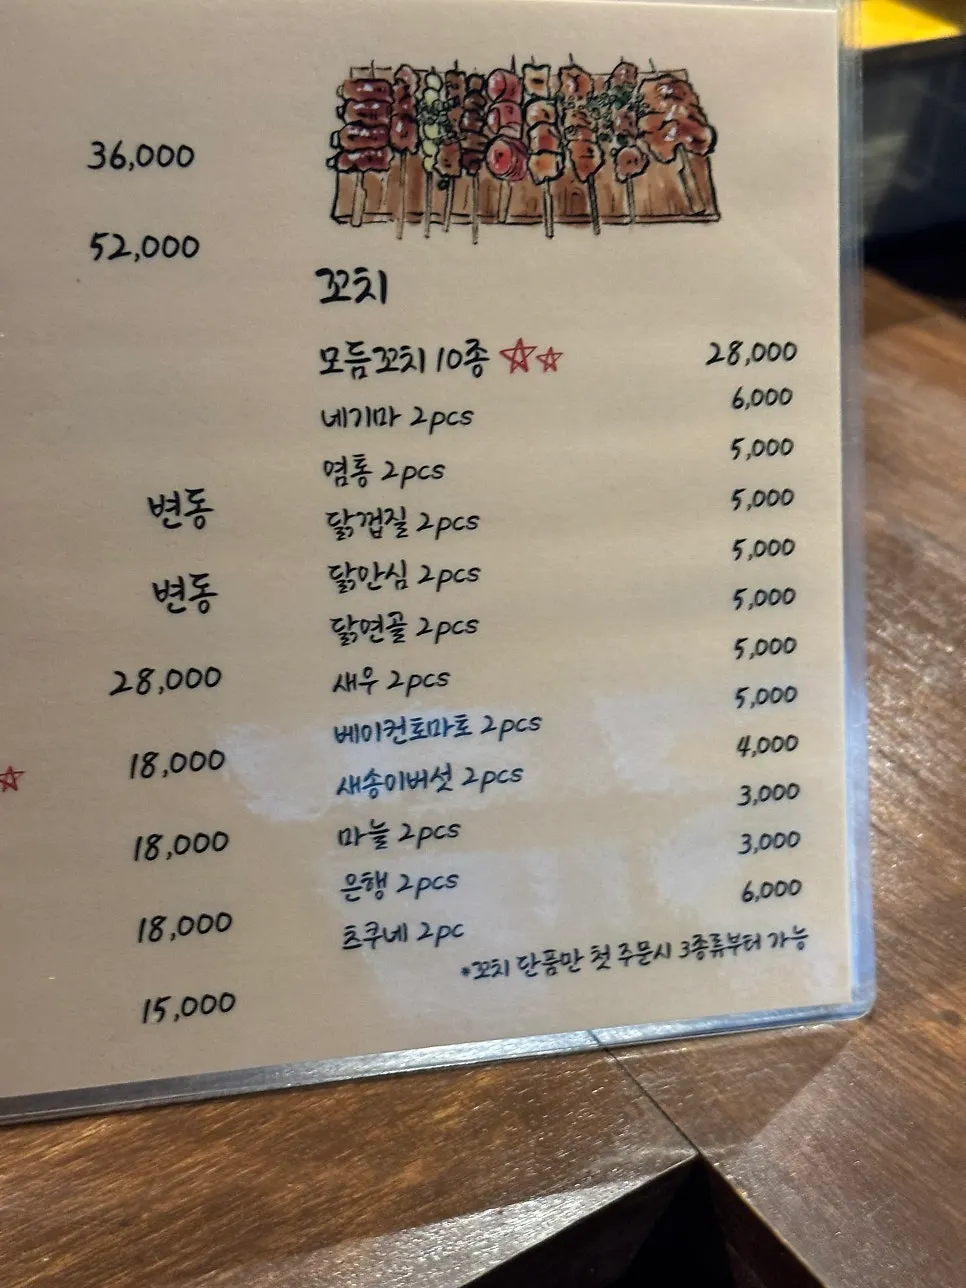 36,000
52,000
변동
변동
28,000
18,000
18,000
18,000
15,000
꼬치
모듬꼬치 10종 28,000
네기마 2pcs 6,000
염통 2pcs 5,000
닭껍질 2pcs 5,000
닭안심 2pcs 5,000
닭연골 2pcs 5,000
새우 2pcs 5,000
베이컨토마토 2pcs 5,000
새송이버섯 2pcs 4,000
마늘 2pcs 3,000
은행 2pcs 3,000
츠쿠네 2pc 6,000
*꼬치 단품만 첫 주문시 3종류부터 가능